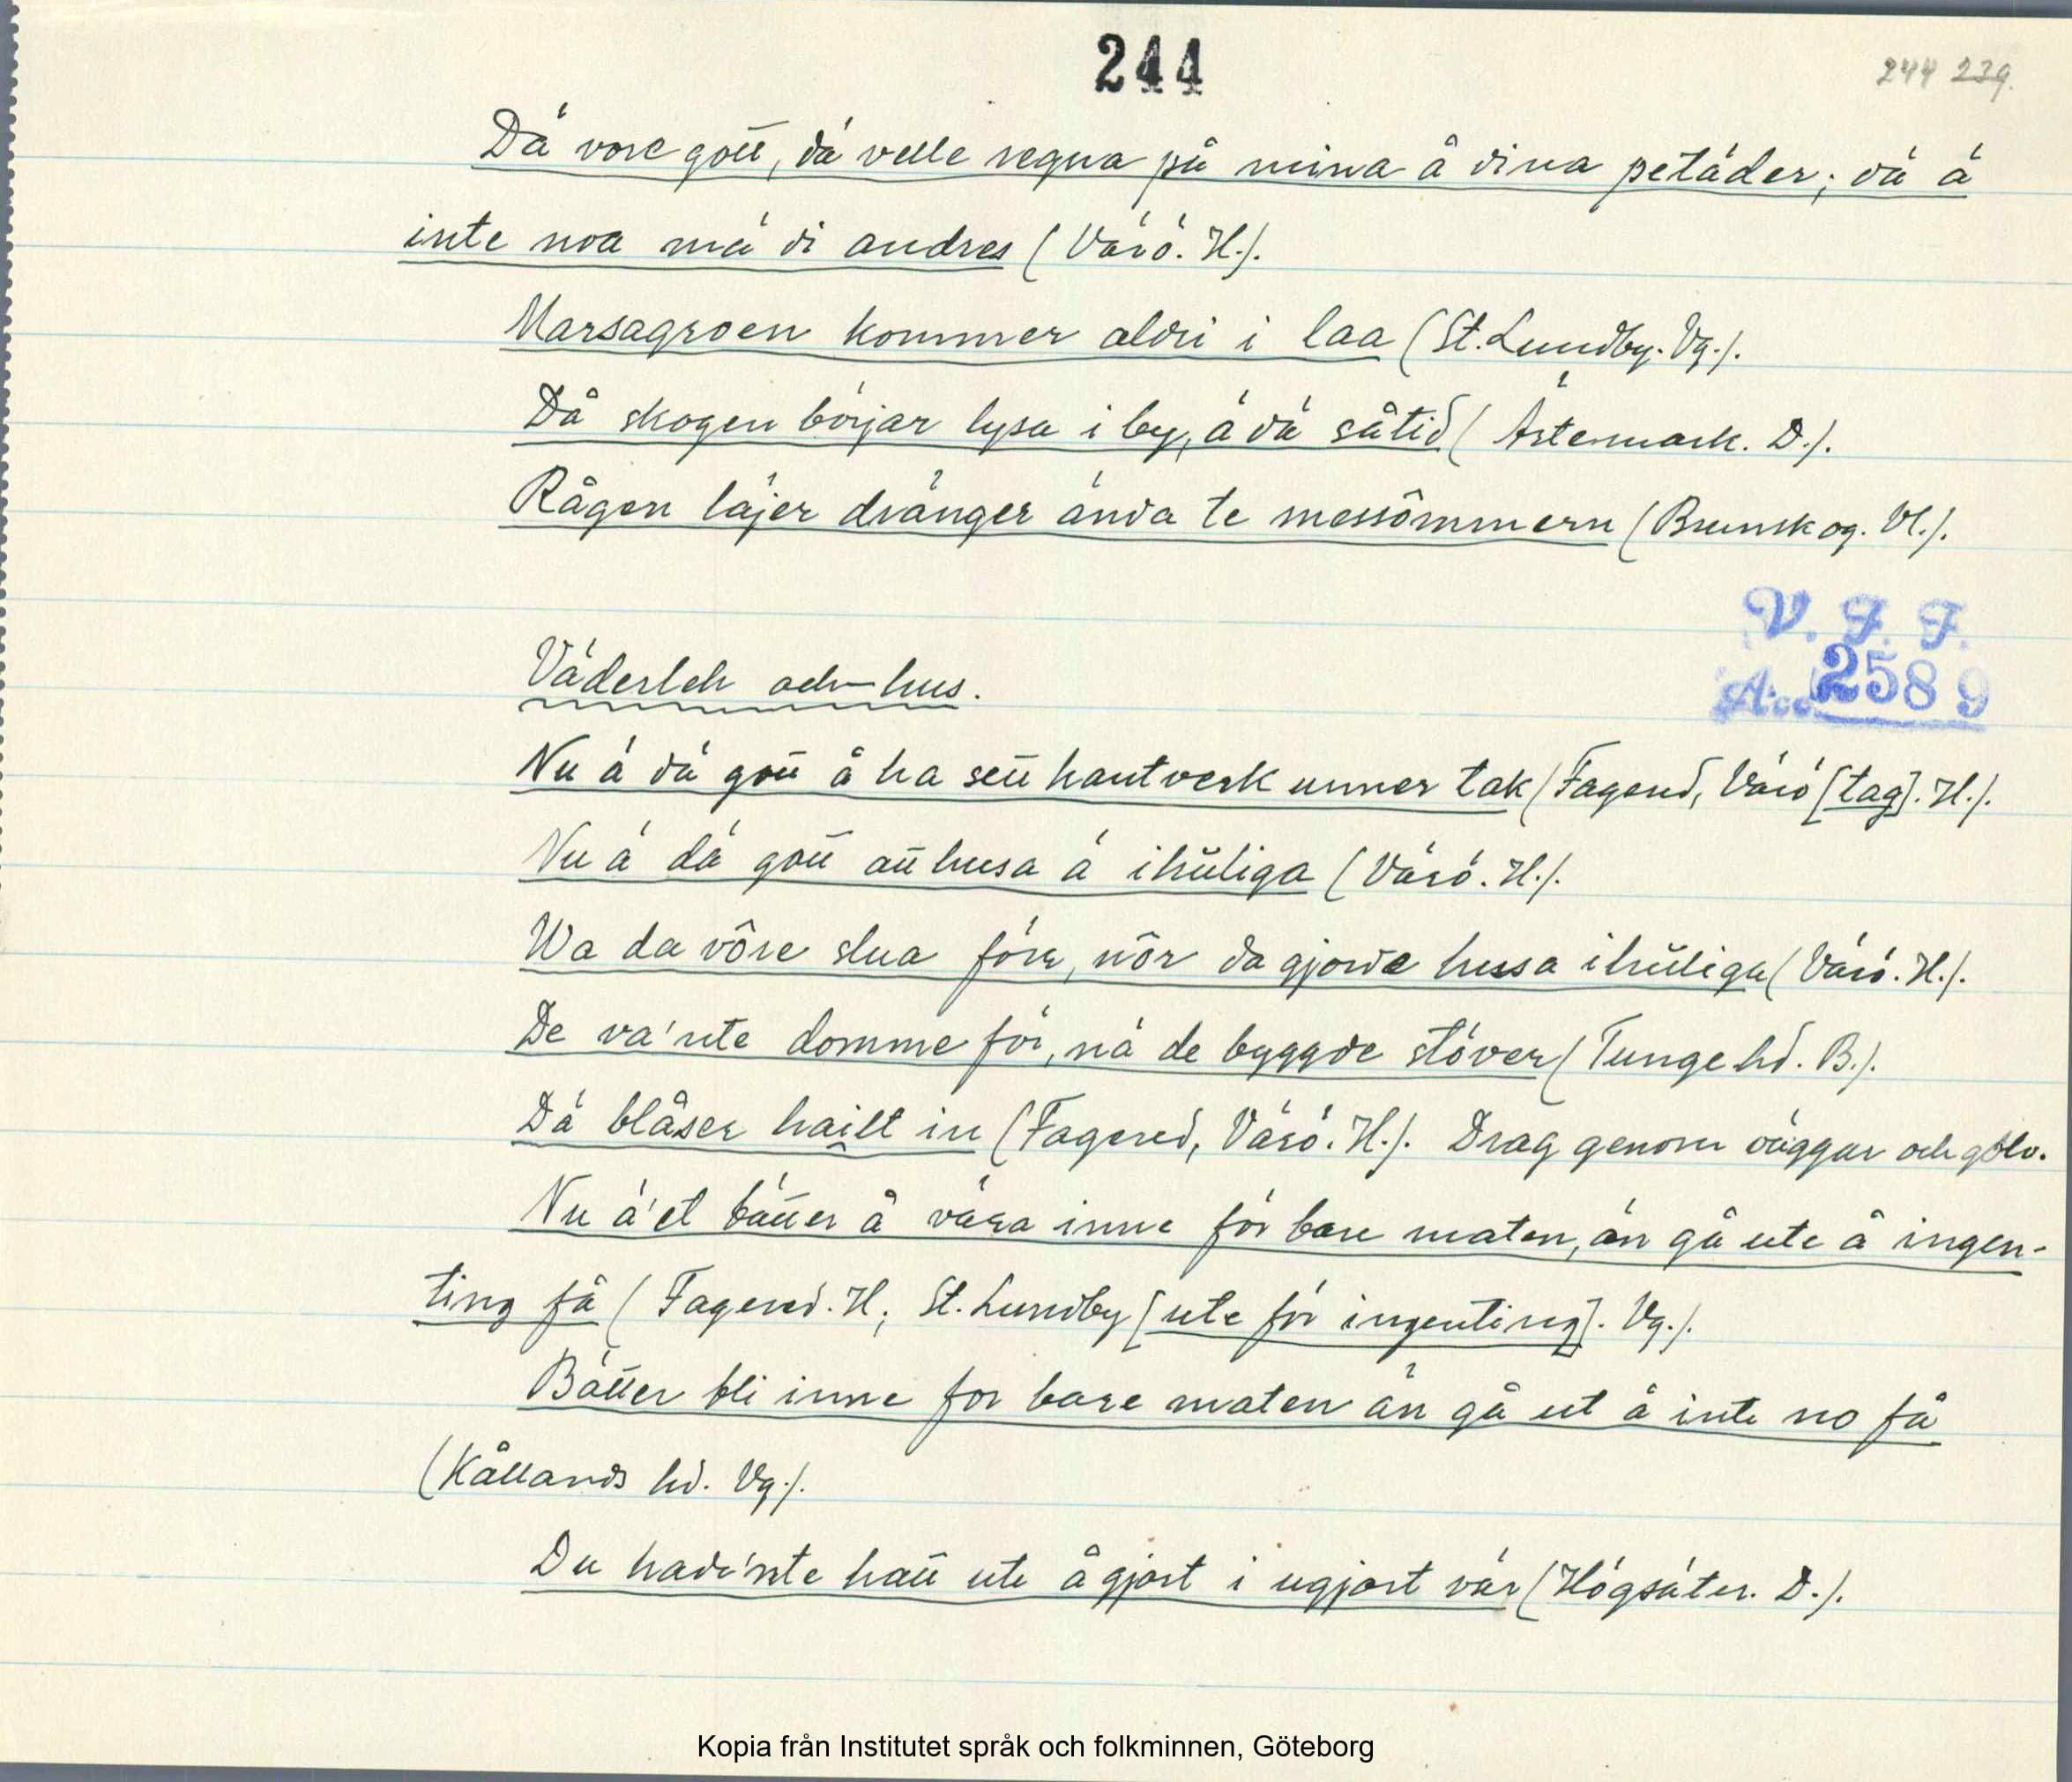 244
244 239.
Dä vore gott, dä velle regna på mina å dina petäder; dä ä
inte noa mä di andres (Värö. H.).
Marsagroen kommer aldri i laa (St. Lundby. Vg.).
Då skogen börjar lysa i by, ä dä såtid (Ärtemark. D.).
Rågen läjer dränger ända te messômmern (Brunskog. Vl.).
V. F. F.
Acc. 2589
Väderlek och hus.
Nu ä dä gott å ha sett hantverk unner tak (Fagered, Värö [tag]. H.).
Nu ä dä gott att husa ä ihuliga (Värö. H.).
Wa da vôre slua förr, nôr da gjorde hussa ihuliga (Värö. H.).
De va'nte domme för, nä de byggde stöver (Tunge hd. B.).
Dä blåser hailt in (Fagered, Värö. H.). Drag genom väggar och golv.
Nu ä'et bätter å vära inne för bare maten, än gå ute å ingen-
ting få (Fagered. H; St. Lundby [ute för ingenting]. Vg.).
Bätter bli inne för bare maten än gå ut å inte no få
(Kållands hd. Vg.).
Du hade'nte hatt ute å gjort i ugjort vär (Högsäter. D.).
Kopia från Institutet språk och folkminnen, Göteborg